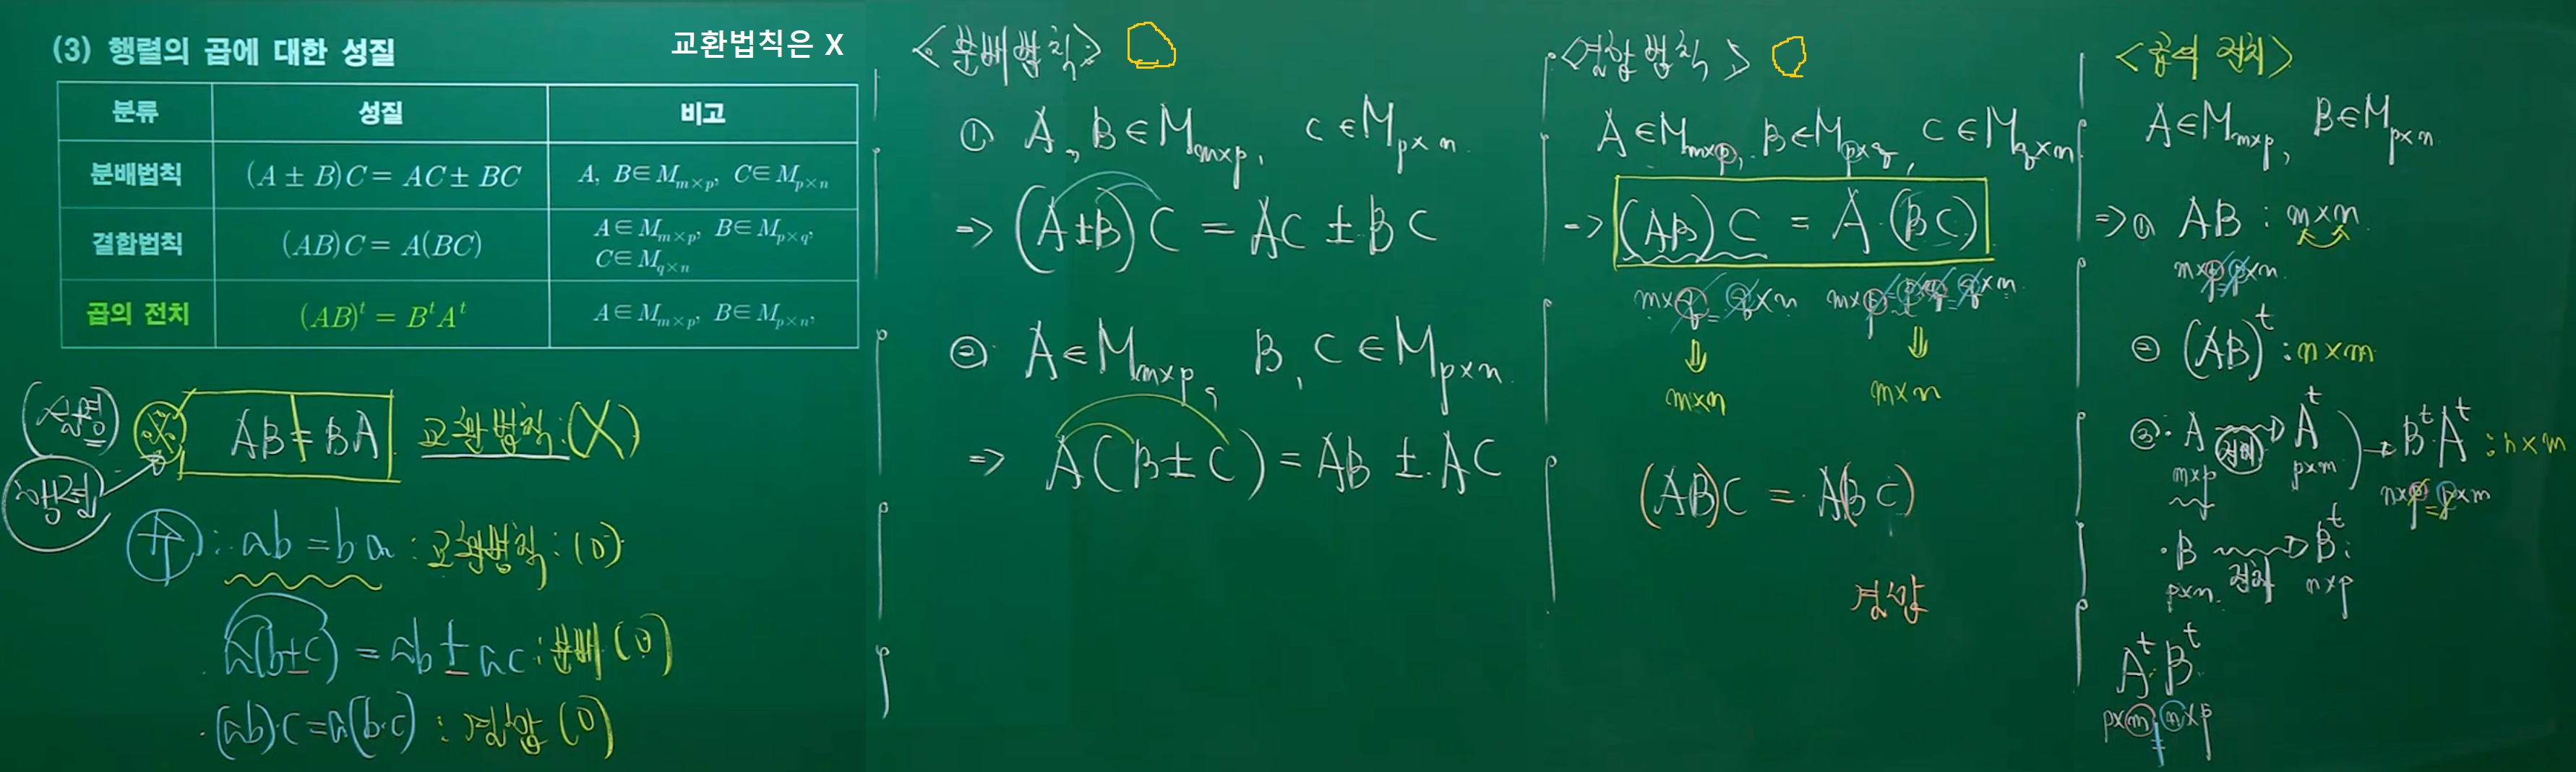 (3) 행렬의 곱에 대한 성질
교환법칙은 X
분류 성질 비고
분배법칙 (A ± B)C = AC ± BC A, B∈M_{m×p}, C∈M_{p×n}
결합법칙 (AB)C = A(BC) A∈M_{m×p}, B∈M_{p×q},
C∈M_{q×n}
곱의 전치 (AB)^t = B^t A^t A∈M_{m×p}, B∈M_{p×n},
※ AB ≠ BA 교환법칙 : (X)
행렬
수 : ab = ba : 교환법칙 : (O)
a(b±c) = ab ± ac : 분배 (O)
(ab)·c = a(b·c) : 결합 (O)
<분배법칙>
① A, B∈M_{m×p}, C∈M_{p×n}
=> (A±B)C = AC ± BC
② A∈M_{m×p}, B, C∈M_{p×n}
=> A(B±C) = AB ± AC
<결합법칙>
A∈M_{m×p}, B∈M_{p×q}, C∈M_{q×n}
=> (AB)C = A·(BC)
m×q = q×n m×p = p×q = q×n
⇓ ⇓
m×n m×n
(AB)C = A(BC)
결합
<곱의 전치>
A∈M_{m×p}, B∈M_{p×n}
=> ① AB : m×n
m×p = p×n
② (AB)^t : n×m
③ · A → A^t → B^t A^t : n×m
전치
m×p p×m n×p = p×m
· B → B^t :
p×n 전치 n×p
A^t · B^t
p×m n×p